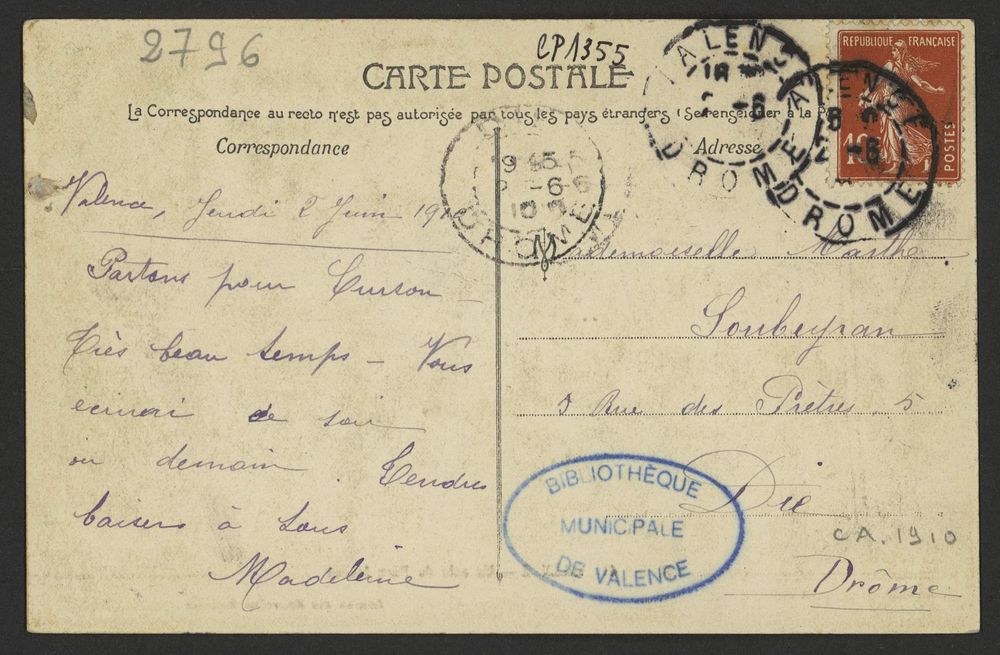 2796
CP1355
CARTE POSTALE
La Correspondance au recto n'est pas autorisée par tous les pays étrangers (Se renseigner à la P
Correspondance
Adresse
REPUBLIQUE FRANÇAISE
10
POSTES
VALENCE
DROME
VALENCE
DROME
DROME
Valence, Jeudi 2 Juin 1910
Partons pour Curson –
Très beau temps – Vous
écrirai ce soir
ou demain Tendres
baisers à tous
Madeleine
Mademoiselle Marthe
Soubeyran
5 Rue des Prêtres, 5
Die
Drôme
CA. 1910
BIBLIOTHÈQUE
MUNICIPALE
DE VALENCE